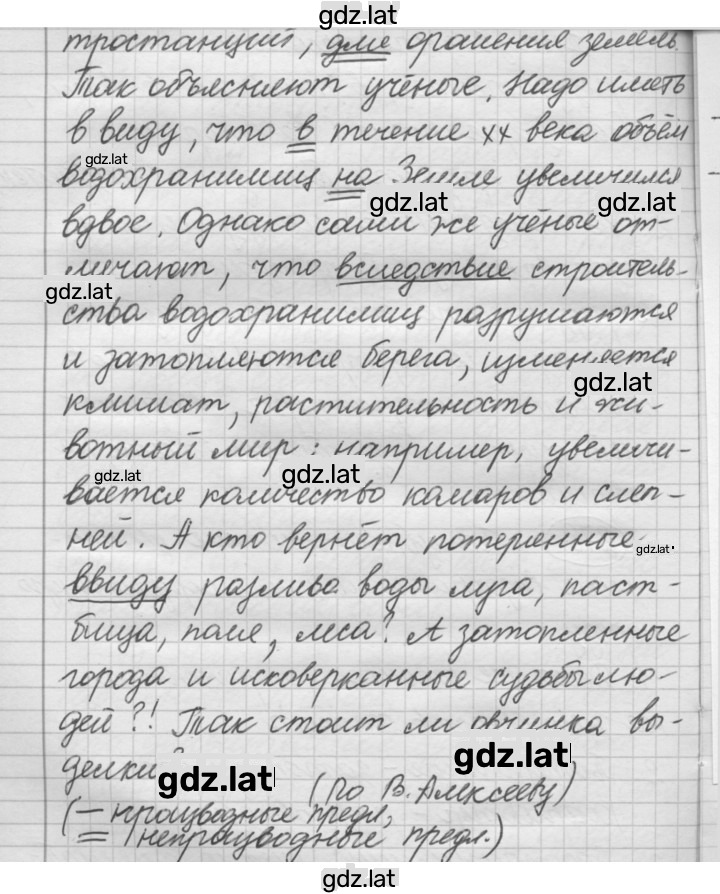 gdz.lat
тростанций, для орашения земель.
Так объясняют учёные. Надо иметь
в виду, что в течение XX века объём
gdz.lat
водохранилищ на Земле увеличился
gdz.lat gdz.lat
вдвое. Однако сами же учёные от-
мечают, что вследствие строитель-
gdz.lat
ства водохранилищ разрушаются
и затопляются берега, изменяется
gdz.lat
климат, растительность и жи-
вотный мир: например, увеличи-
gdz.lat gdz.lat
вается количество комаров и слеп-
ней. А кто вернёт потерянные
gdz.lat
ввиду разлива воды луга, паст-
бища, поля, леса? А затопленные
города и исковерканные судьбы лю-
дей?! Так стоит ли овчинка вы-
делки?
gdz.lat gdz.lat
(По В. Алксееву)
(— производные предл,
= непроизводные предл.)
gdz.lat